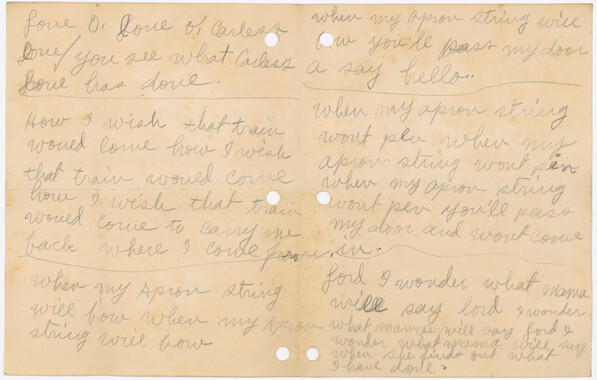 Love O, Love o, Carless
Love, you see what Carless
Love has done.
How I wish that train
would come how I wish
that train would come
how I wish that train
would come to carry me
back where I come from.
when my Apron string
will bow when my Apron
string will bow
when my apron string will
bow you'll pass my door
a say hello..
when my apron string
wont pen when my
apron string wont pen
when my apron string
wont pen you'll pass
my door and wont come
in.
Lord I wonder what mama
will say lord I wonder
what mama will say Lord I
wonder what mama will say
when she finds out what
I have done.